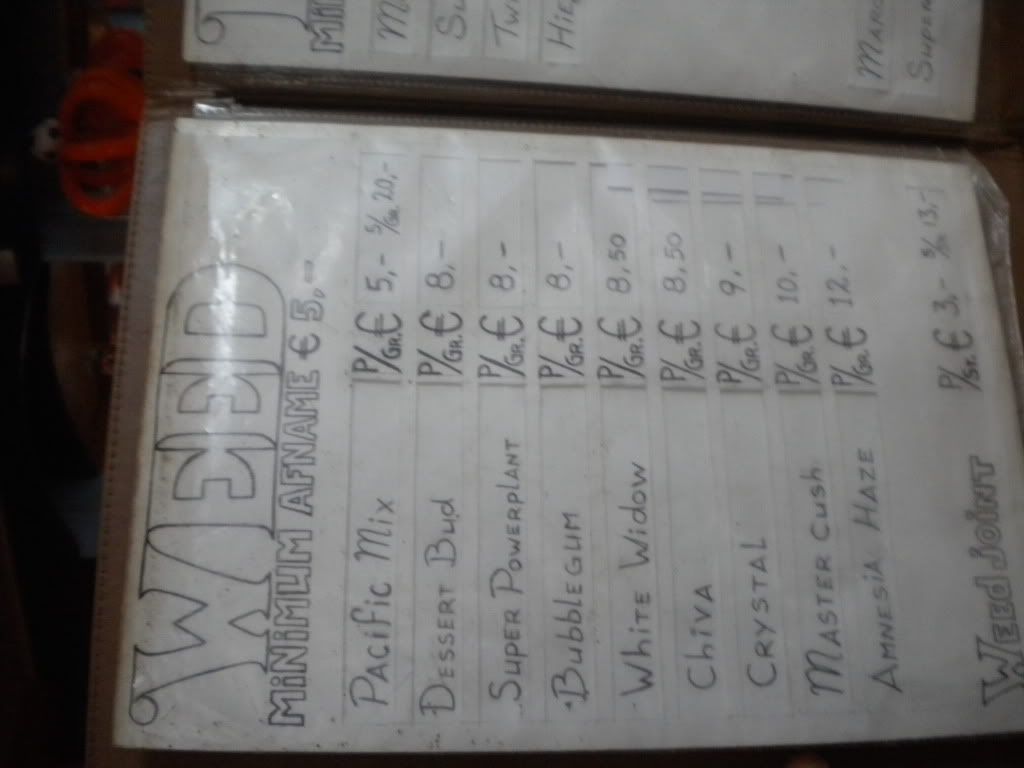 WEED
MINIMUM AFNAME € 5,--
PACIFIC MIX P/GR. € 5,- 5/GR. 20,-
DESSERT BUD P/GR. € 8,-
SUPER POWERPLANT P/GR. € 8,-
BUBBLEGUM P/GR. € 8,-
WHITE WIDOW P/GR. € 8,50
CHIVA P/GR. € 8,50
CRYSTAL P/GR. € 9,-
MASTER CUSH P/GR. € 10,-
AMNESIA HAZE P/GR. € 12,-
WEED JOINT P/ST. € 3,- 5/ST. 13,-